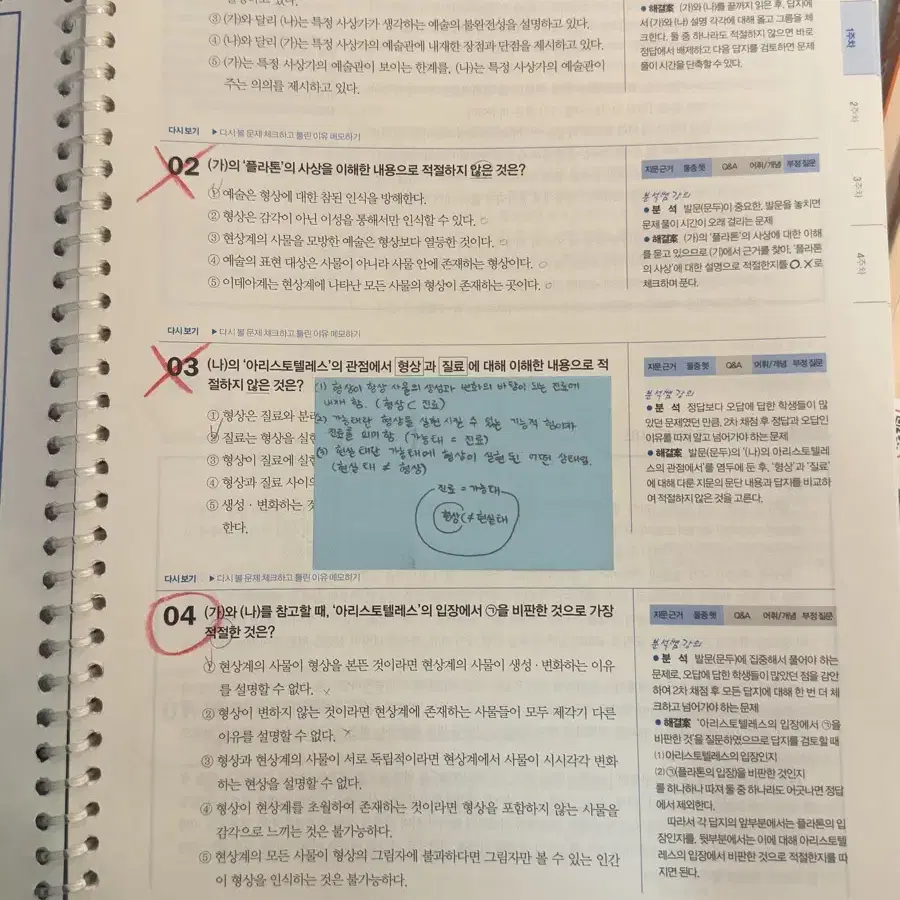 ③ (가)와 달리 (나)는 특정 사상가가 생각하는 예술의 불완전성을 설명하고 있다.
④ (나)와 달리 (가)는 특정 사상가의 예술관에 내재한 장점과 단점을 제시하고 있다.
⑤ (가)는 특정 사상가의 예술관이 보이는 한계를, (나)는 특정 사상가의 예술관이
주는 의의를 제시하고 있다.
• 해결案 (가)와 (나)를 끝까지 읽은 후, 답지에
서 (가)와 (나) 설명 각각에 대해 옳고 그름을 체
크한다. 둘 중 하나라도 적절하지 않으면 바로
정답에서 배제하고 다음 답지를 검토하면 문제
풀이 시간을 단축할 수 있다.
1주차
2주차
3주차
4주차
다시보기 ▶ 다시 볼 문제 체크하고 틀린 이유 메모하기
02 (가)의 '플라톤'의 사상을 이해한 내용으로 적절하지 않은 것은?
① 예술은 형상에 대한 참된 인식을 방해한다.
② 형상은 감각이 아닌 이성을 통해서만 인식할 수 있다. ○
③ 현상계의 사물을 모방한 예술은 형상보다 열등한 것이다. ○
④ 예술의 표현 대상은 사물이 아니라 사물 안에 존재하는 형상이다. ○
⑤ 이데아계는 현상계에 나타난 모든 사물의 형상이 존재하는 곳이다. ○
지문 근거 동충 햇 Q&A 어휘/개념 부정 질문
분석쌤 강의
• 분 석 발문(문두)이 중요한, 발문을 놓치면
문제 풀이 시간이 오래 걸리는 문제
• 해결案 (가)의 '플라톤'의 사상에 대한 이해
를 묻고 있으므로 (가)에서 근거를 찾아, '플라톤
의 사상'에 대한 설명으로 적절한지를 O, X로
체크하며 푼다.
다시보기 ▶ 다시 볼 문제 체크하고 틀린 이유 메모하기
03 (나)의 '아리스토텔레스'의 관점에서 형상과 질료에 대해 이해한 내용으로 적
절하지 않은 것은?
① 형상은 질료와 분리
② 질료는 형상을 실현
③ 형상이 질료에 실현
④ 형상과 질료 사이의
⑤ 생성·변화하는 것
한다.
(1) 형상이 항상 사물의 생성과 변화의 바탕이 되는 질료에
내재 함. (형상 ⊂ 질료)
(2) 가능태란 형상을 실현시킬 수 있는 기능적 힘이자
질료를 의미함 (가능태 = 질료)
(3) 현실태란 가능태에 형상이 실현된 어떤 상태임.
(현실태 ≠ 형상)
질료 = 가능태
형상 ≠ 현실태
지문 근거 동충 햇 Q&A 어휘/개념 부정 질문
분석쌤 강의
• 분 석 정답보다 오답에 답한 학생들이 많
았던 문제였던 만큼, 2차 채점 후 정답과 오답인
이유를 따져 알고 넘어가야 하는 문제
• 해결案 발문(문두)의 '(나)의 아리스토텔레
스의 관점에서'를 염두에 둔 후, '형상'과 '질료'
에 대해 다룬 지문의 문단 내용과 답지를 비교하
여 적절하지 않은 것을 고른다.
다시보기 ▶ 다시 볼 문제 체크하고 틀린 이유 메모하기
04 (가)와 (나)를 참고할 때, '아리스토텔레스'의 입장에서 ㉠을 비판한 것으로 가장
적절한 것은?
① 현상계의 사물이 형상을 본뜬 것이라면 현상계의 사물이 생성·변화하는 이유
를 설명할 수 없다. ×
② 형상이 변하지 않는 것이라면 현상계에 존재하는 사물들이 모두 제각기 다른
이유를 설명할 수 없다. ×
③ 형상과 현상계의 사물이 서로 독립적이라면 현상계에서 사물이 시시각각 변화
하는 현상을 설명할 수 없다.
④ 형상이 현상계를 초월하여 존재하는 것이라면 형상을 포함하지 않는 사물을
감각으로 느끼는 것은 불가능하다.
⑤ 현상계의 모든 사물이 형상의 그림자에 불과하다면 그림자만 볼 수 있는 인간
이 형상을 인식하는 것은 불가능하다.
지문 근거 동충 햇 Q&A 어휘/개념 부정 질문
분석쌤 강의
• 분 석 발문(문두)에 집중해서 풀어야 하는
문제로, 오답에 답한 학생들이 많았던 점을 감안
하여 2차 채점 후 모든 답지에 대해 한 번 더 체
크하고 넘어가야 하는 문제
• 해결案 '아리스토텔레스의 입장에서 ㉠을
비판한 것'을 질문하였으므로 답지를 검토할 때
(1) 아리스토텔레스의 입장인지
(2) ㉠(플라톤의 입장)을 비판한 것인지
를 하나하나 따져 둘 중 하나라도 어긋나면 정답
에서 제외한다.
따라서 각 답지의 앞부분에서는 플라톤의 입
장인지를, 뒷부분에서는 이에 대해 아리스토텔
레스의 입장에서 비판한 것으로 적절한지를 따
지면 된다.